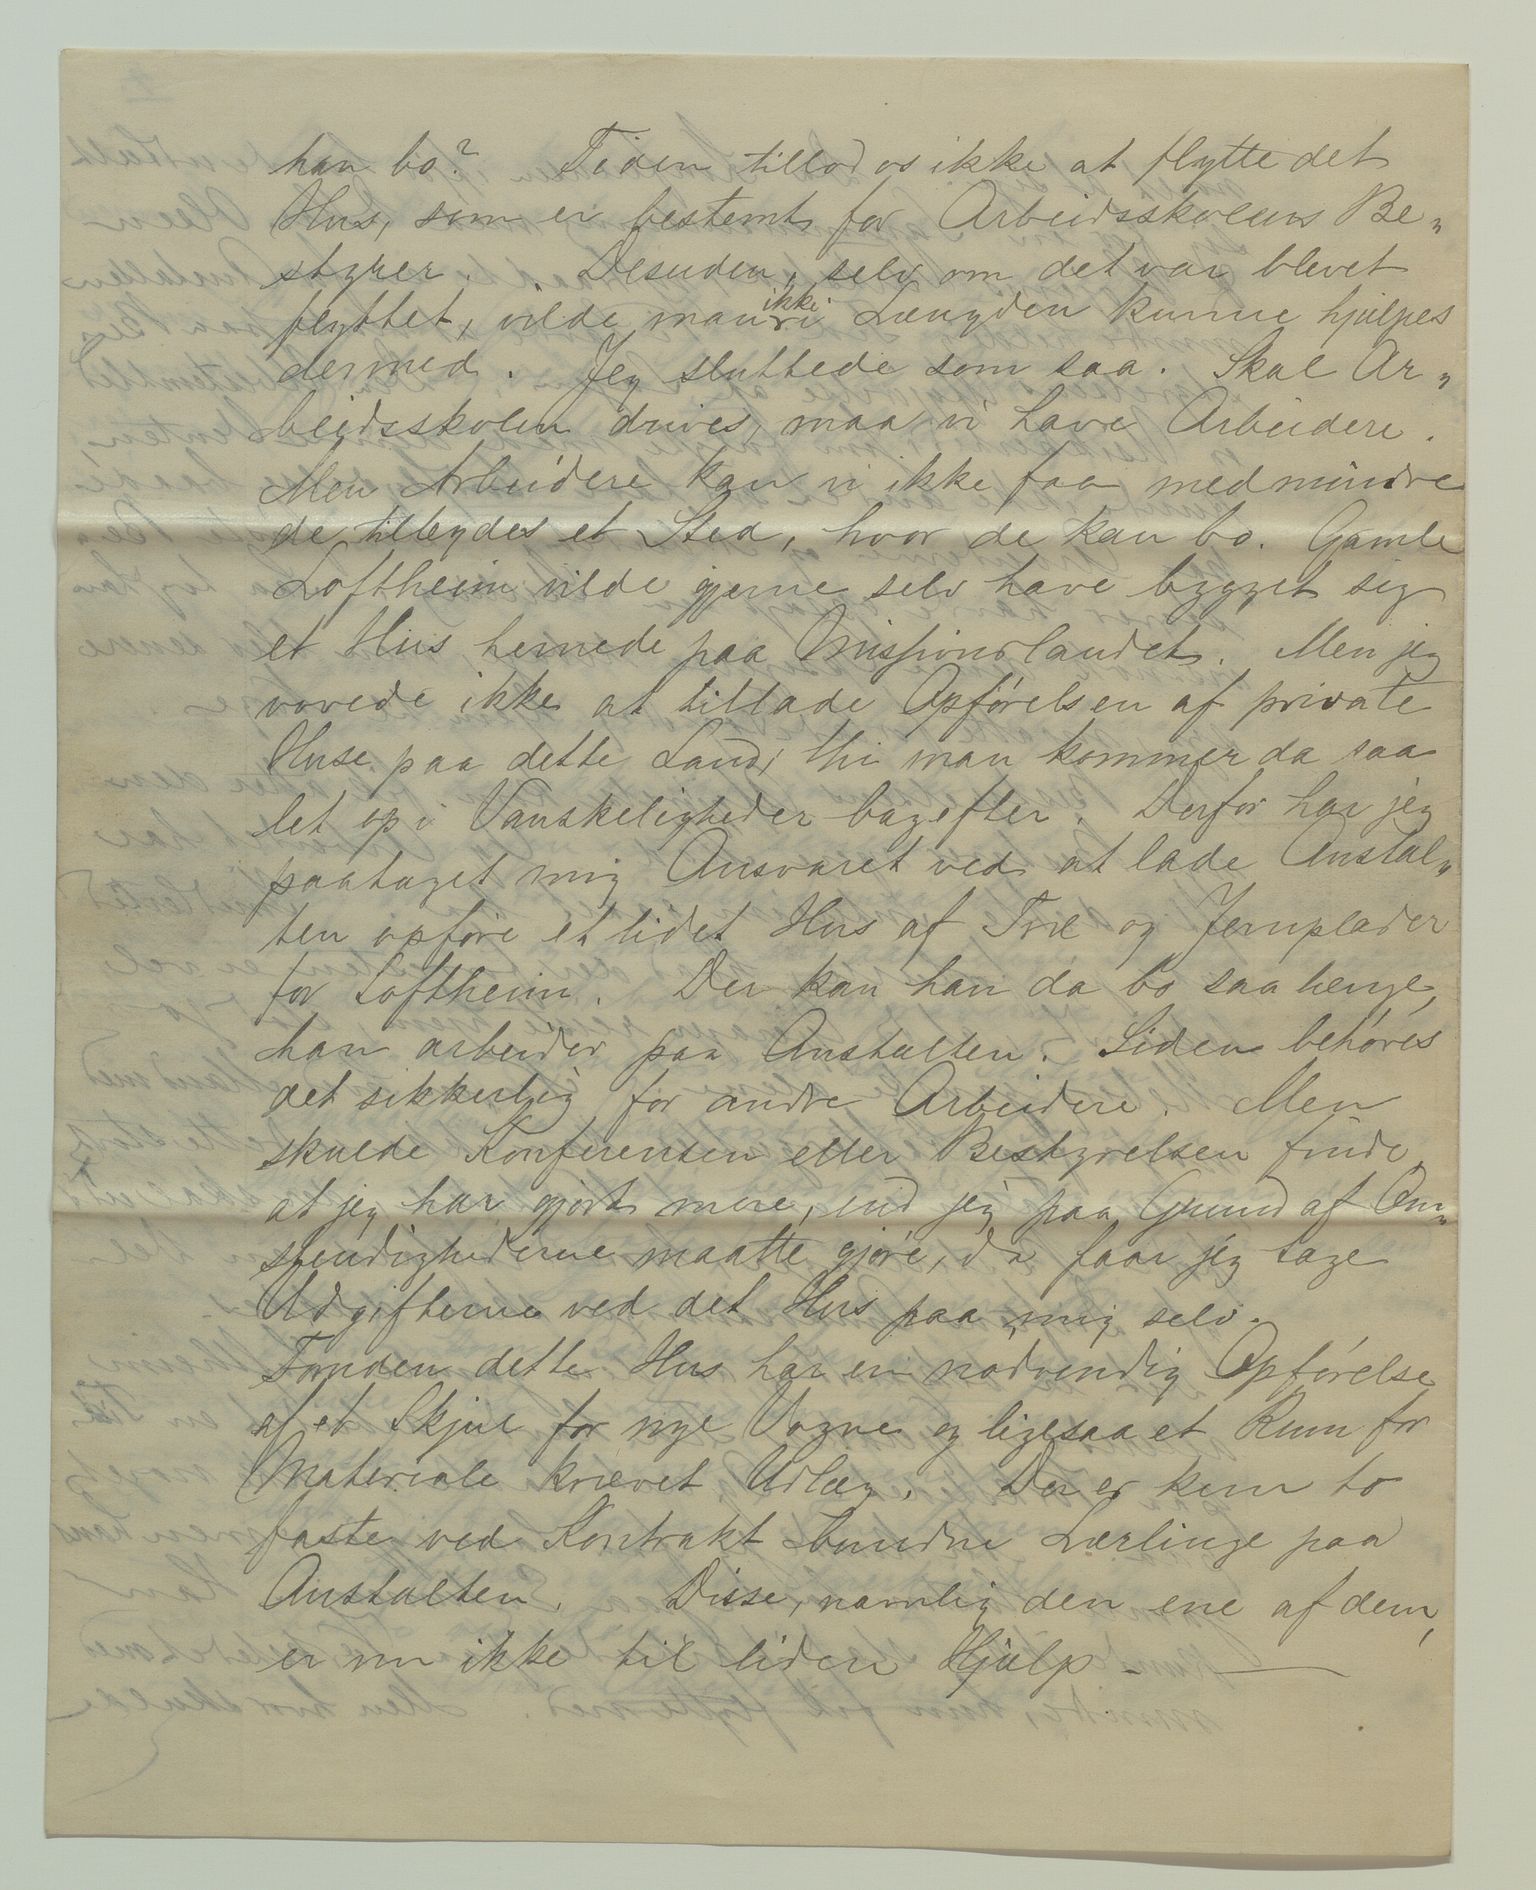 han bo? Tiden tillod os ikke at flytte det
Hus, som er bestemt for Arbeidsskolens Be-
styrer. Desuden, selv om det var blevet
flyttet, vilde man ikke i Længden kunne hjulpes
dermed. Jeg sluttede som saa. Skal Ar-
beidsskolen drives, maa vi have Arbeidere.
Men Arbeidere kan vi ikke faa medmindre
de tilbydes et Sted, hvor de kan bo. Gamle
Loftheim vilde gjerne selv have bygget sig
et Hus hernede paa Missionslandet. Men jeg
vovede ikke at tillade Opførelsen af private
Huse paa dette Land, thi man kommer da saa
let op i Vanskeligheder bagefter. Derfor har jeg
paataget mig Ansvaret ved at lade Anstal-
ten opføre et lidet Hus af Træ og Jernplader
for Loftheim. Der kan han da bo saa længe,
han arbeider paa Anstalten. Siden behøves
det sikkerlig for andre Arbeidere. Men
skulde Konferensen eller Bestyrelsen finde,
at jeg har gjort mere, end jeg paa Grund af Om-
stendighederne maatte gjøre, da faar jeg tage
Udgifterne ved det Hus paa mig selv.
Foruden dette Hus har en nødvendig Opførelse
af et Skjul for nye Vogne og ligesaa et Rum for
Materiale krævet Udlæg. Der er kun to
faste ved Kontrakt bundne Lærlinge paa
Anstalten. Disse, namlig den ene af dem,
er nu ikke til liden Hjælp. —